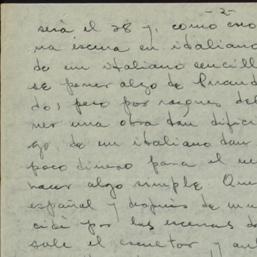 -2-
será el 28 y, como creo
na escena en italiano
do en italiano sencill
se poner algo de Pirand
do; pero por razones del
ner una obra tan difici
go, de un italiano tan
poco dinero para el ve
hacer algo simple. Que
español y después de mu
cidí por las escenas d
sale el escultor y